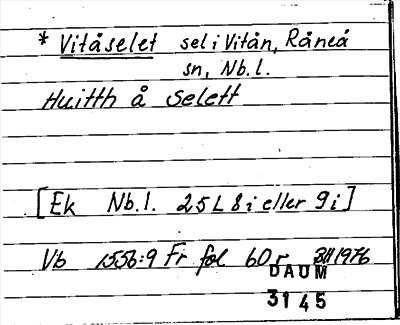 * Vitåselet sel i Vitån, Råneå
sn, Nb.l.
Huitth å Selett
[Ek Nb.l. 25 L 8 i eller 9 i]
Vb 1556:9 Fr fol 60 r BH 1976
DAUM
3145